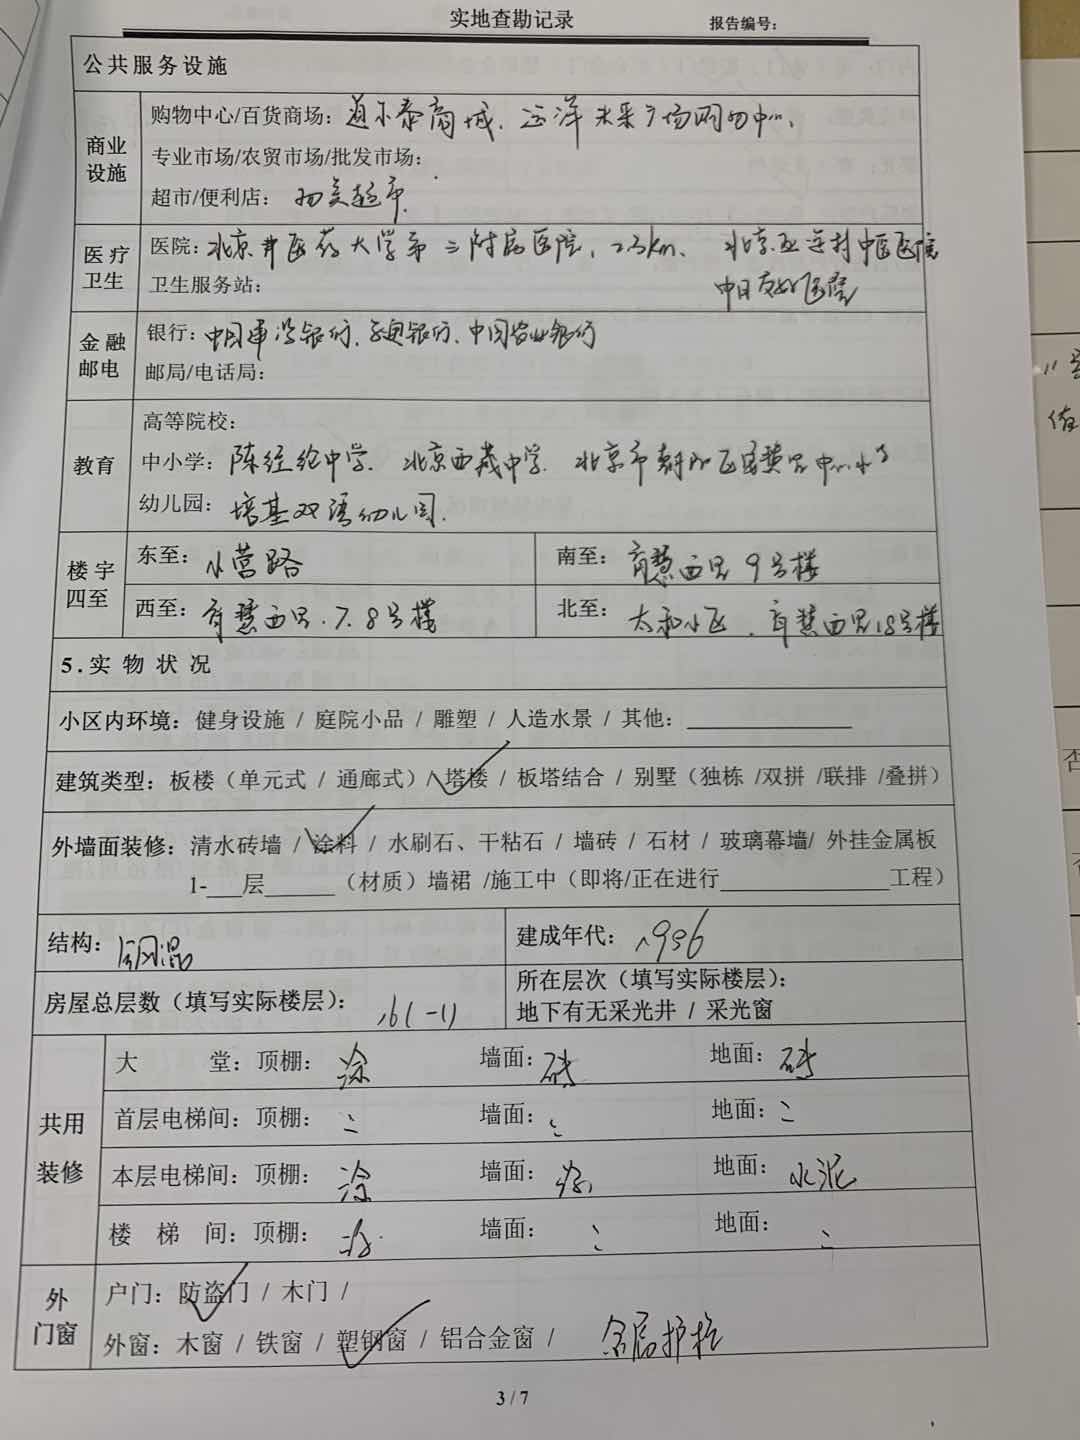 实地查勘记录 报告编号：
公共服务设施
商业设施
购物中心/百货商场：道尔泰商城、远洋未来广场购物中心、
专业市场/农贸市场/批发市场：
超市/便利店：物美超市
医疗卫生
医院：北京中医药大学第三附属医院，2.3km、北京亚运村中医医院
中日友好医院
卫生服务站：
金融邮电
银行：中国建设银行、交通银行、中国农业银行
邮局/电话局：
教育
高等院校：
中小学：陈经纶中学、北京西藏中学、北京市朝阳区 中心小学
幼儿园：培基双语幼儿园
楼宇四至
东至：小营路 南至：育慧西里9号楼
西至：育慧西里、7.8号楼 北至：太和小区、育慧西里18号楼
5.实 物 状 况
小区内环境：健身设施 / 庭院小品 / 雕塑 / 人造水景 / 其他：
建筑类型：板楼（单元式 / 通廊式）/ 塔楼 / 板塔结合 / 别墅（独栋 /双拼 /联排 /叠拼）
外墙面装修：清水砖墙 / 涂料 / 水刷石、干粘石 / 墙砖 / 石材 / 玻璃幕墙/ 外挂金属板
1-___层______（材质）墙裙 /施工中（即将/正在进行______________工程）
结构：钢混 建成年代：1996
房屋总层数（填写实际楼层）：16(-1) 所在层次（填写实际楼层）：
地下有无采光井 / 采光窗
共用装修
大 堂：顶棚：涂 墙面：砖 地面：砖
首层电梯间：顶棚： 墙面： 地面：
本层电梯间：顶棚：涂 墙面：涂 地面：水泥
楼 梯 间：顶棚：涂 墙面： 地面：
外门窗
户门：防盗门 / 木门 /
外窗：木窗 / 铁窗 / 塑钢窗 / 铝合金窗 / 金属护栏
3 / 7